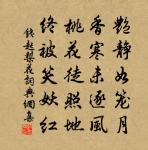 艷靜如籠月
香寒未逐風
桃花徒照地
終被笑妖紅
錢起梨花詞典網集